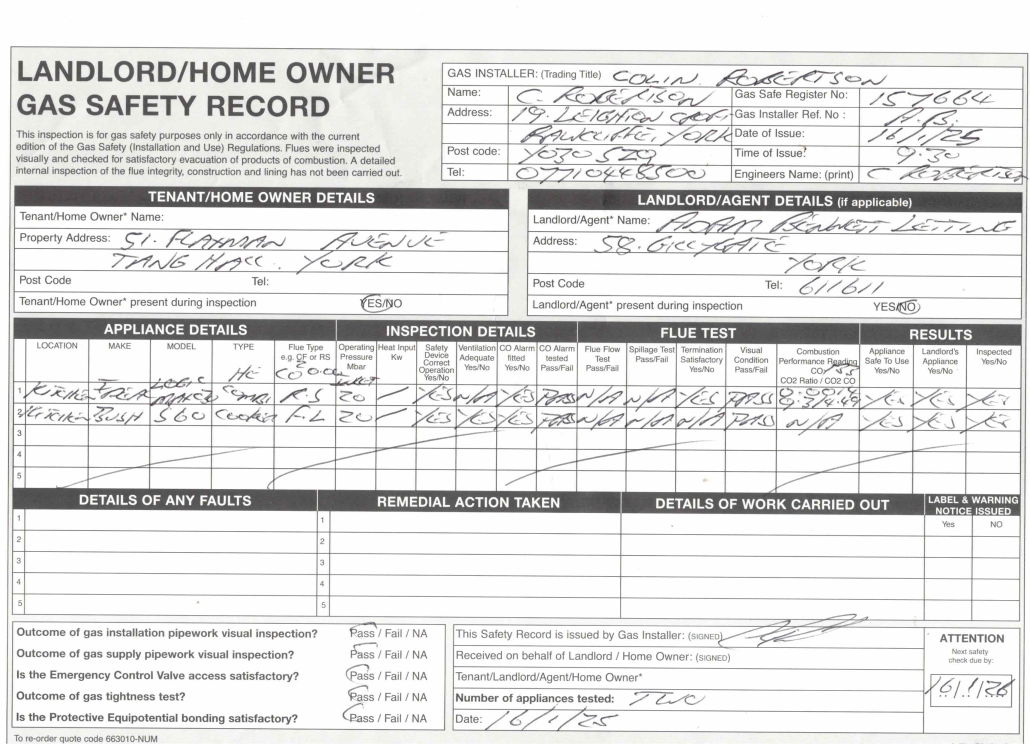 LANDLORD/HOME OWNER
GAS SAFETY RECORD
This inspection is for gas safety purposes only in accordance with the current
edition of the Gas Safety (Installation and Use) Regulations. Flues were inspected
visually and checked for satisfactory evacuation of products of combustion. A detailed
internal inspection of the flue integrity, construction and lining has not been carried out.
GAS INSTALLER: (Trading Title) COLIN ROBERTSON
Name: C. ROBERTSON Gas Safe Register No: 157664
Address: 19. LEIGHTON CROFT Gas Installer Ref. No : A.B.
RAWCLIFFE YORK Date of Issue: 16/1/25
Post code: YO30 5ZQ Time of Issue: 9.30
Tel: 07710448500 Engineers Name: (print) C ROBERTSON
TENANT/HOME OWNER DETAILS
Tenant/Home Owner* Name:
Property Address: 51. FLAXMAN AVENUE
TANG HALL. YORK
Post Code Tel:
Tenant/Home Owner* present during inspection YES/NO
LANDLORD/AGENT DETAILS (if applicable)
Landlord/Agent* Name: ADAM BENNETT LETTING
Address: 58. GILLYGATE
YORK
Post Code Tel: 611611
Landlord/Agent* present during inspection YES/NO
APPLIANCE DETAILS INSPECTION DETAILS FLUE TEST RESULTS
LOCATION MAKE MODEL TYPE Flue Type e.g. CF or RS Operating Pressure Mbar Heat Input Kw Safety Device Correct Operation Yes/No Ventilation Adequate Yes/No CO Alarm fitted Yes/No CO Alarm tested Pass/Fail Flue Flow Test Pass/Fail Spillage Test Pass/Fail Termination Satisfactory Yes/No Visual Condition Pass/Fail Combustion Performance Reading CO/ CO2 Ratio / CO2 CO Appliance Safe To Use Yes/No Landlord's Appliance Yes/No Inspected Yes/No
1 KITCHEN IDEAL LOGIC HE COMBI R.S 20 / YES N/A YES PASS N/A N/A YES PASS YES YES YES
2 KITCHEN BUSH S60 COOKER F-L 20 / YES YES YES PASS N/A N/A N/A PASS N/A YES YES YES
3
4
5
DETAILS OF ANY FAULTS REMEDIAL ACTION TAKEN DETAILS OF WORK CARRIED OUT LABEL & WARNING NOTICE ISSUED
Yes NO
1 1
2 2
3 3
4 4
5 5
Outcome of gas installation pipework visual inspection? Pass / Fail / NA
Outcome of gas supply pipework visual inspection? Pass / Fail / NA
Is the Emergency Control Valve access satisfactory? Pass / Fail / NA
Outcome of gas tightness test? Pass / Fail / NA
Is the Protective Equipotential bonding satisfactory? Pass / Fail / NA
This Safety Record is issued by Gas Installer: (SIGNED)
Received on behalf of Landlord / Home Owner: (SIGNED)
Tenant/Landlord/Agent/Home Owner*
Number of appliances tested: TWO
Date: 16/1/25
ATTENTION
Next safety
check due by:
16/1/26
To re-order quote code 663010-NUM